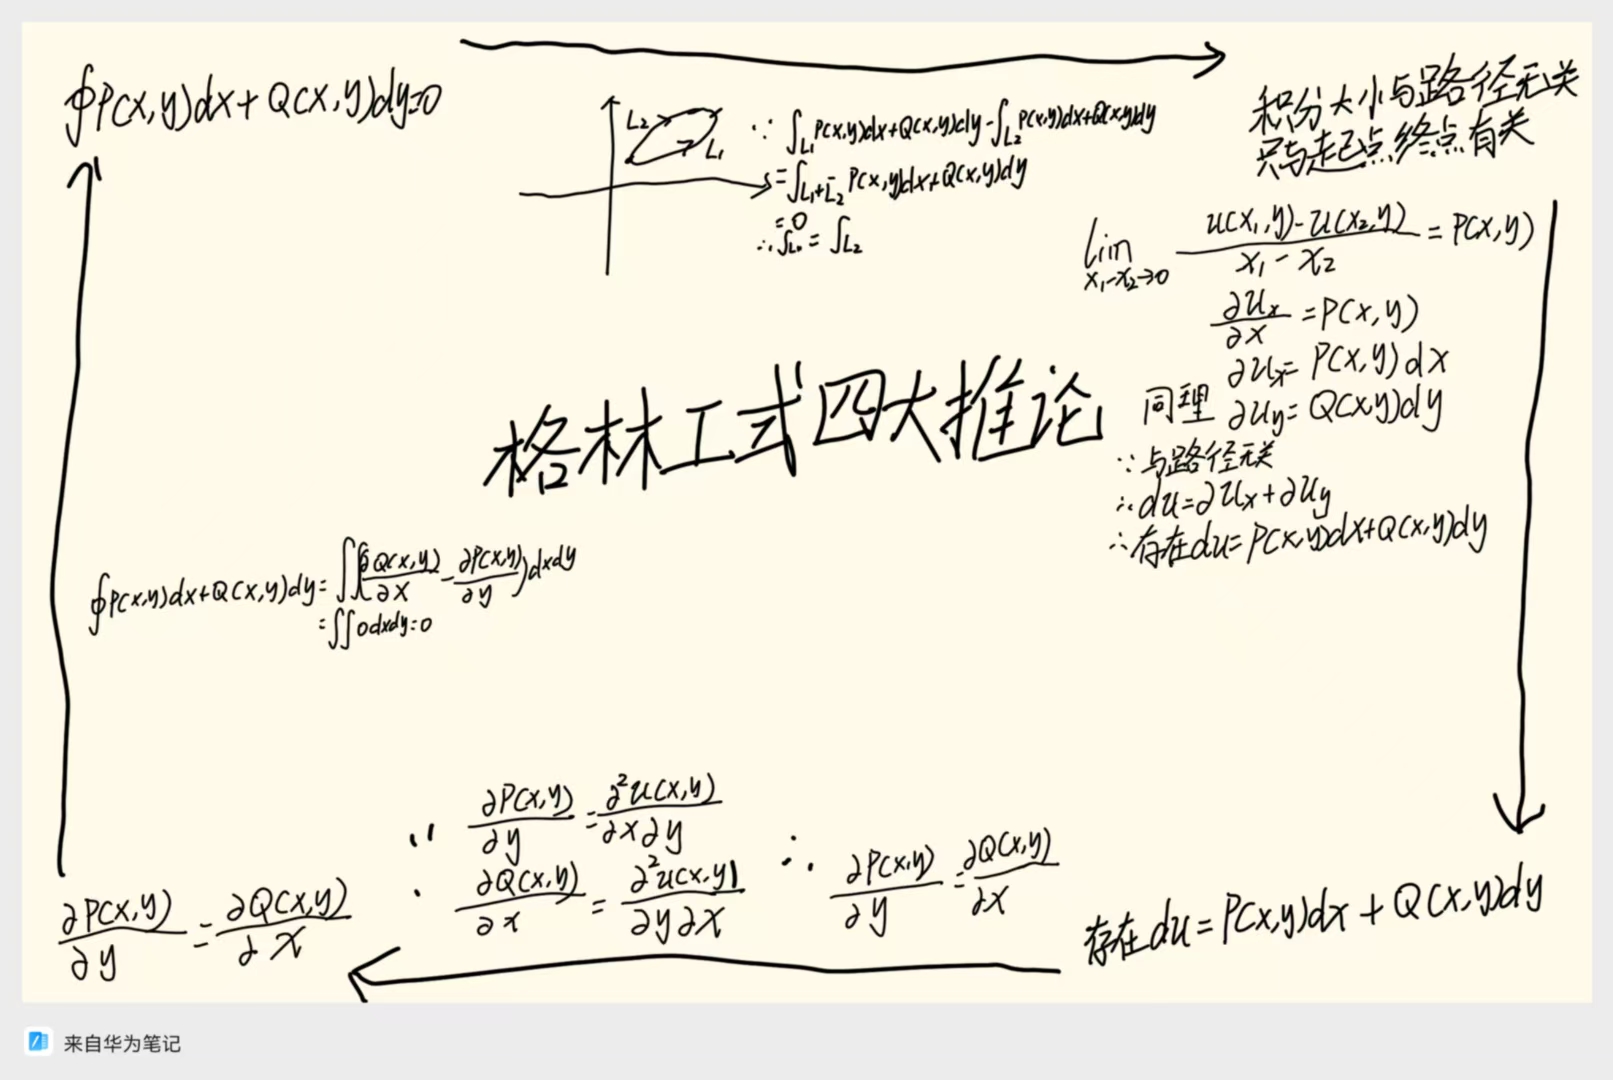 ∮P(x,y)dx+Q(x,y)dy=0
积分大小与路径无关
只与起点终点有关
L2
L1
∵ ∫L1 P(x,y)dx+Q(x,y)dy-∫L2 P(x,y)dx+Q(x,y)dy
=∫L1+L2⁻ P(x,y)dx+Q(x,y)dy
=0
∴∫L1=∫L2
lim x1-x2→0 (u(x1,y)-u(x2,y))/(x1-x2)=P(x,y)
∂ux/∂x=P(x,y)
∂ux=P(x,y)dx
同理 ∂uy=Q(x,y)dy
∵与路径无关
∴du=∂ux+∂uy
∴存在du=P(x,y)dx+Q(x,y)dy
格林工式四大推论
∮P(x,y)dx+Q(x,y)dy=∬(∂Q(x,y)/∂x-∂P(x,y)/∂y)dxdy
=∬0dxdy=0
∵ ∂P(x,y)/∂y=∂²u(x,y)/∂x∂y
∂Q(x,y)/∂x=∂²u(x,y)/∂y∂x
∴ ∂P(x,y)/∂y=∂Q(x,y)/∂x
∂P(x,y)/∂y=∂Q(x,y)/∂x
存在du=P(x,y)dx+Q(x,y)dy
来自华为笔记